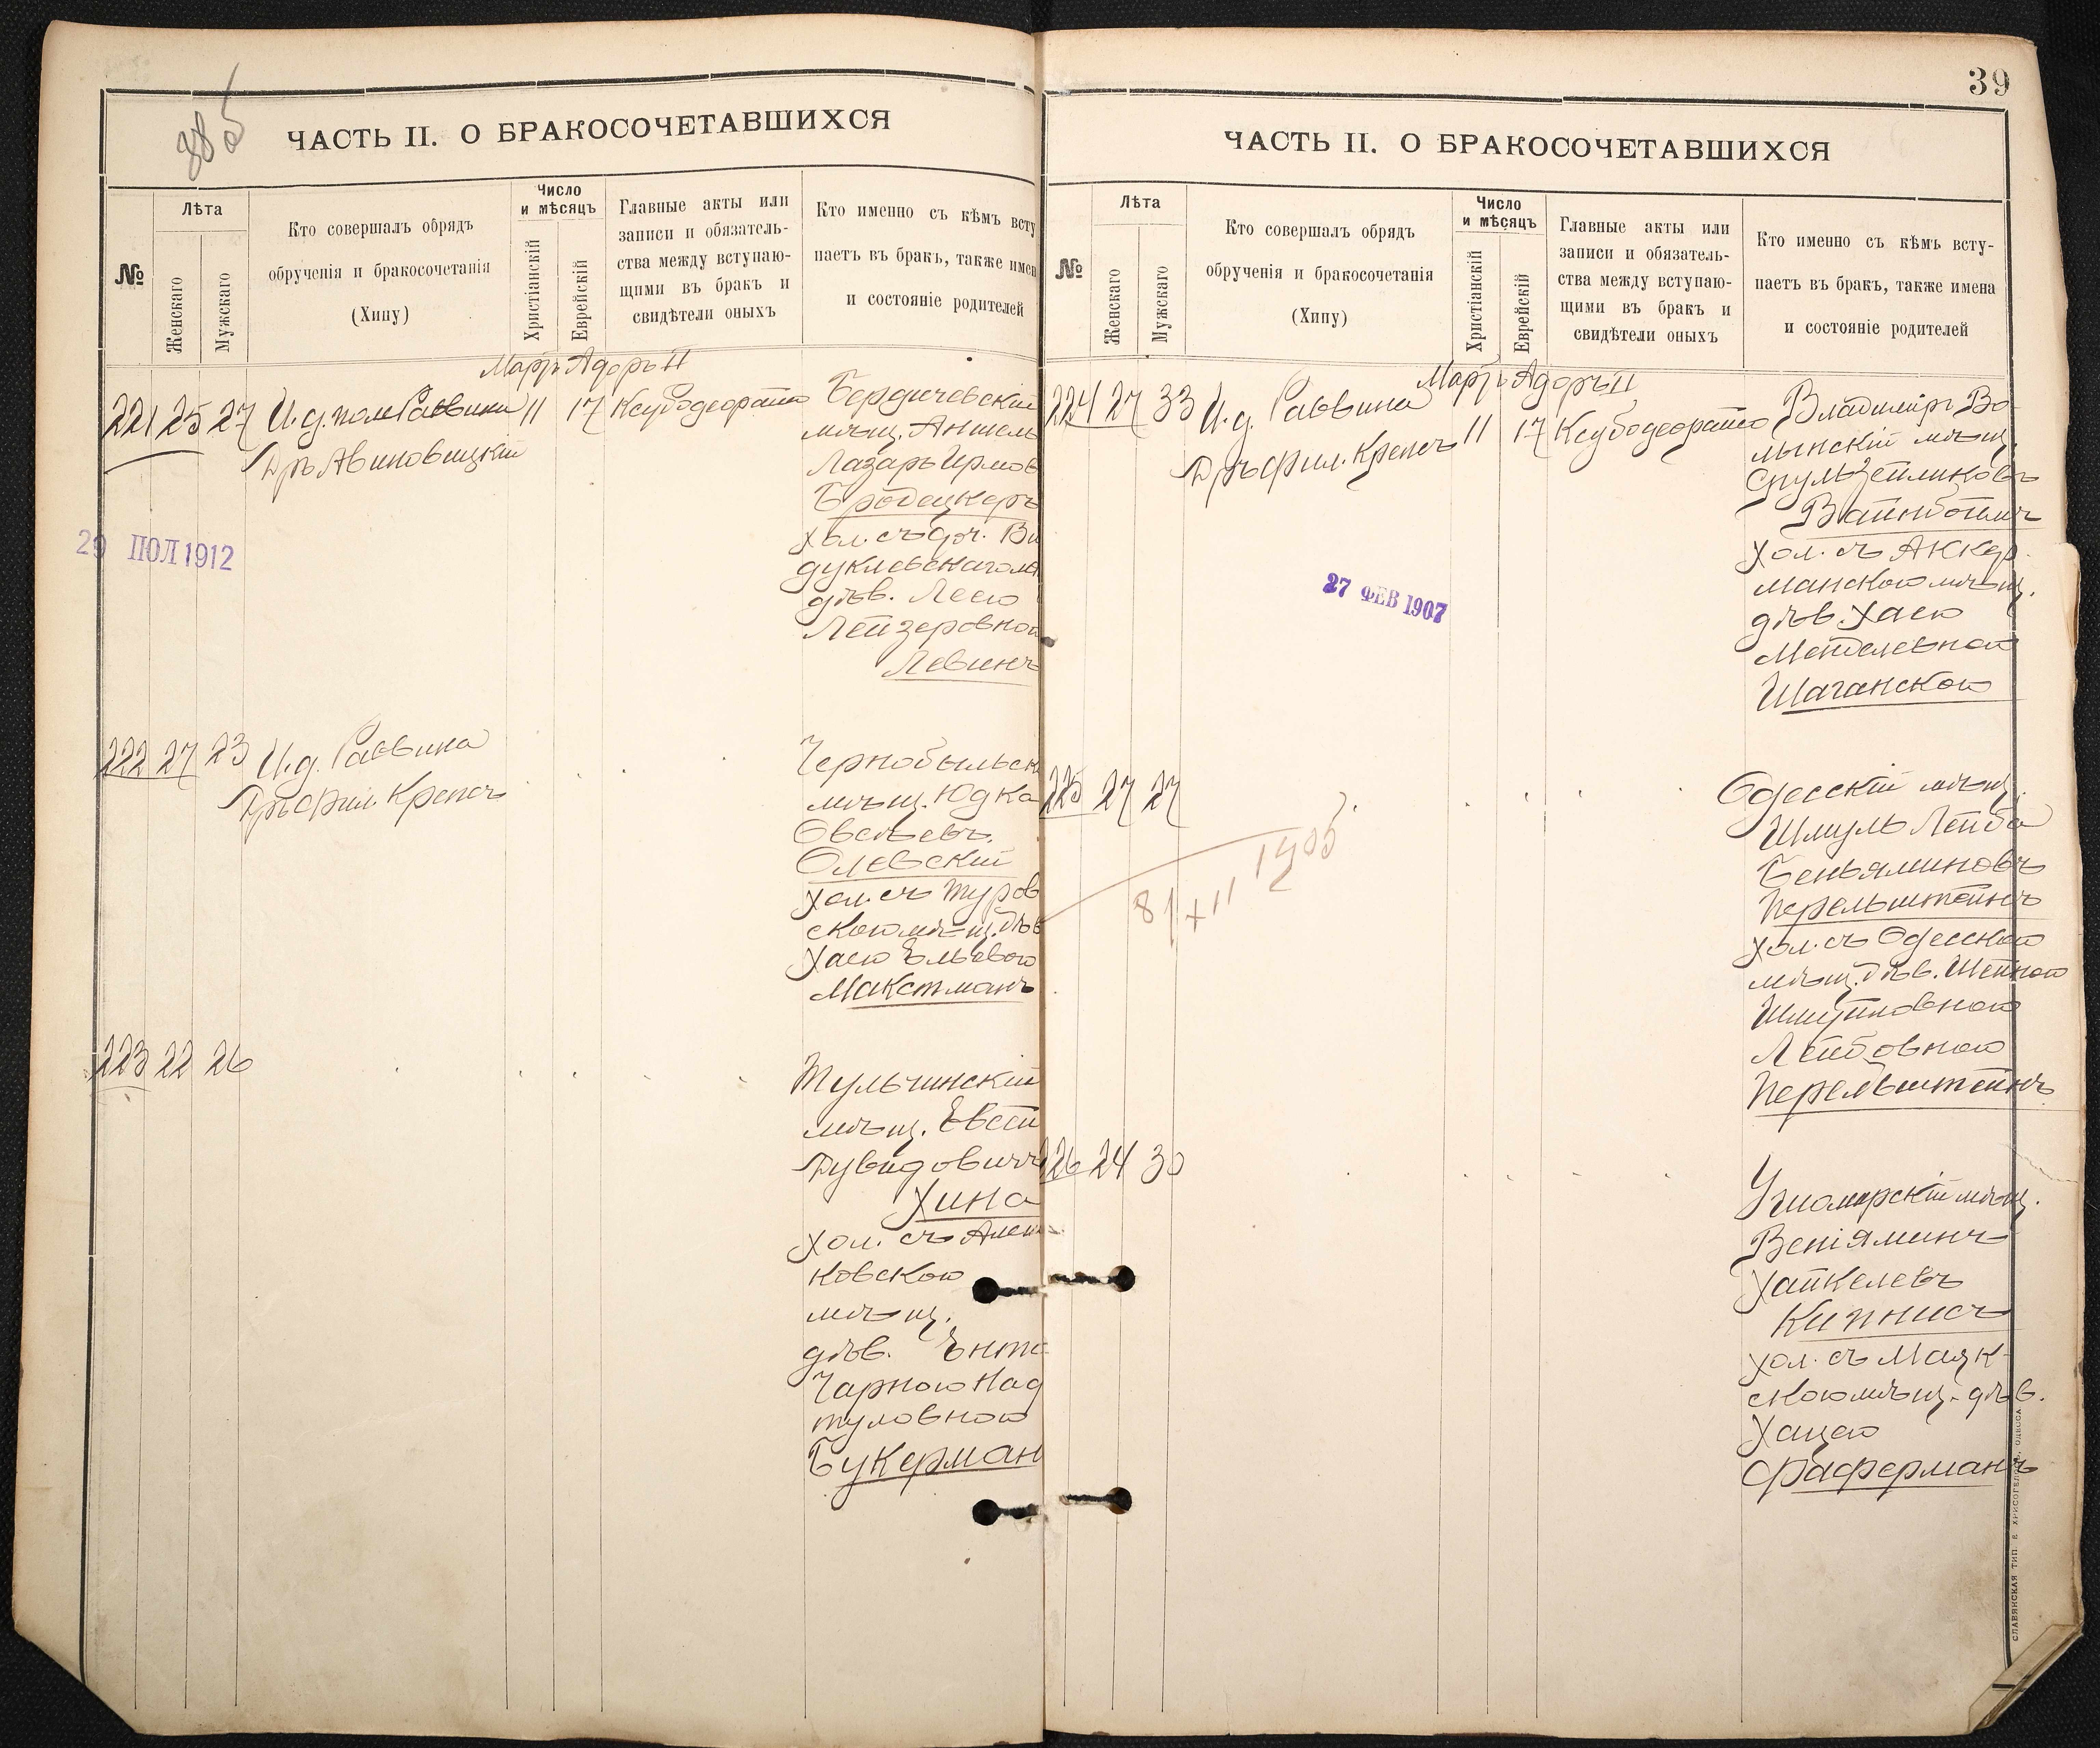 385
ЧАСТЬ II. О БРАКОСОЧЕТАВШИХСЯ
№
Лѣта
Женскаго
Мужскаго
Кто совершалъ обрядъ
обрученія и бракосочетанія
(Хипу)
Число
и мѣсяцъ
Христіанскій
Еврейскій
Главные акты или
записи и обязатель-
ства между вступаю-
щими въ бракъ и
свидѣтели оныхъ
Кто именно съ кѣмъ всту
паетъ въ бракъ, также имен
и состояніе родителей
Мартъ Адоръ II
221 25 27 И.д. пом. Раввина 11 17 Ксубодеорайто
Д-ръ Авиновицкій
29 ІЮЛ 1912
Бердичевскій
мѣщ. Аншель
Лазарь Ирмов
Бродецкеръ
хол. съ доч. Ви
дуклевскаго мѣ
дѣв. Леею
Лейзеровной
Левинъ
222 27 23 И.д. Раввина
Д-ръ Фил. Крепсъ
Чернобыльск
мѣщ. Юдка
Овсѣевъ
Олевскій
хол. съ Туров
скою мѣщ. дѣв
Хаею Ельевою
Макстманъ
223 22 26
Тульчинскій
мѣщ. Евсей
Дувидовичъ
Хина
хол. съ Алеш
ковскою
мѣщ.
дѣв. Энтe
Чарною Наф
туловною
Букерман
39
ЧАСТЬ II. О БРАКОСОЧЕТАВШИХСЯ
№
Лѣта
Женскаго
Мужскаго
Кто совершалъ обрядъ
обрученія и бракосочетанія
(Хипу)
Число
и мѣсяцъ
Христіанскій
Еврейскій
Главные акты или
записи и обязатель-
ства между вступаю-
щими въ бракъ и
свидѣтели оныхъ
Кто именно съ кѣмъ всту-
паетъ въ бракъ, также имена
и состояніе родителей
Мартъ Адоръ II
224 27 33 И.д. Раввина 11 17 Ксубодеорайто
Д-ръ Фил. Крепсъ
27 ФЕВ 1907
Владиміръ Во-
лынскій мѣщ.
Срулъ Зейликовъ
Вайнбоймъ
хол. съ Аккер-
манскою мѣщ.
дѣв. Хаею
Менделевной
Шаганскою
225 27 27
8/XII 1905
Одесскій мѣщ.
Шмуль Лейба
Беньяминовъ
Перельштейнъ
хол. съ Одесскою
мѣщ. дѣв. Шейною
Шмуиловною
Лейбовною
Перельштейнъ
226 24 30
Ушомирскій мѣщ.
Веніяминъ
Хайкелевъ
Кипнисъ
хол. съ Маяк-
скою мѣщ. дѣв.
Хацею
Фаферманъ
СЛАВЯНСКАЯ ТИП. Е. ХРИСОГЕЛОСЪ, ОДЕССА